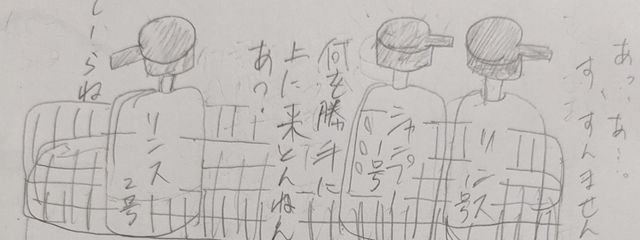 あっ、あ…。
す、すんません
リンス
号
シャンプー
号
何を勝手に
上に来とんねん
あっ!
リンス2号
らね